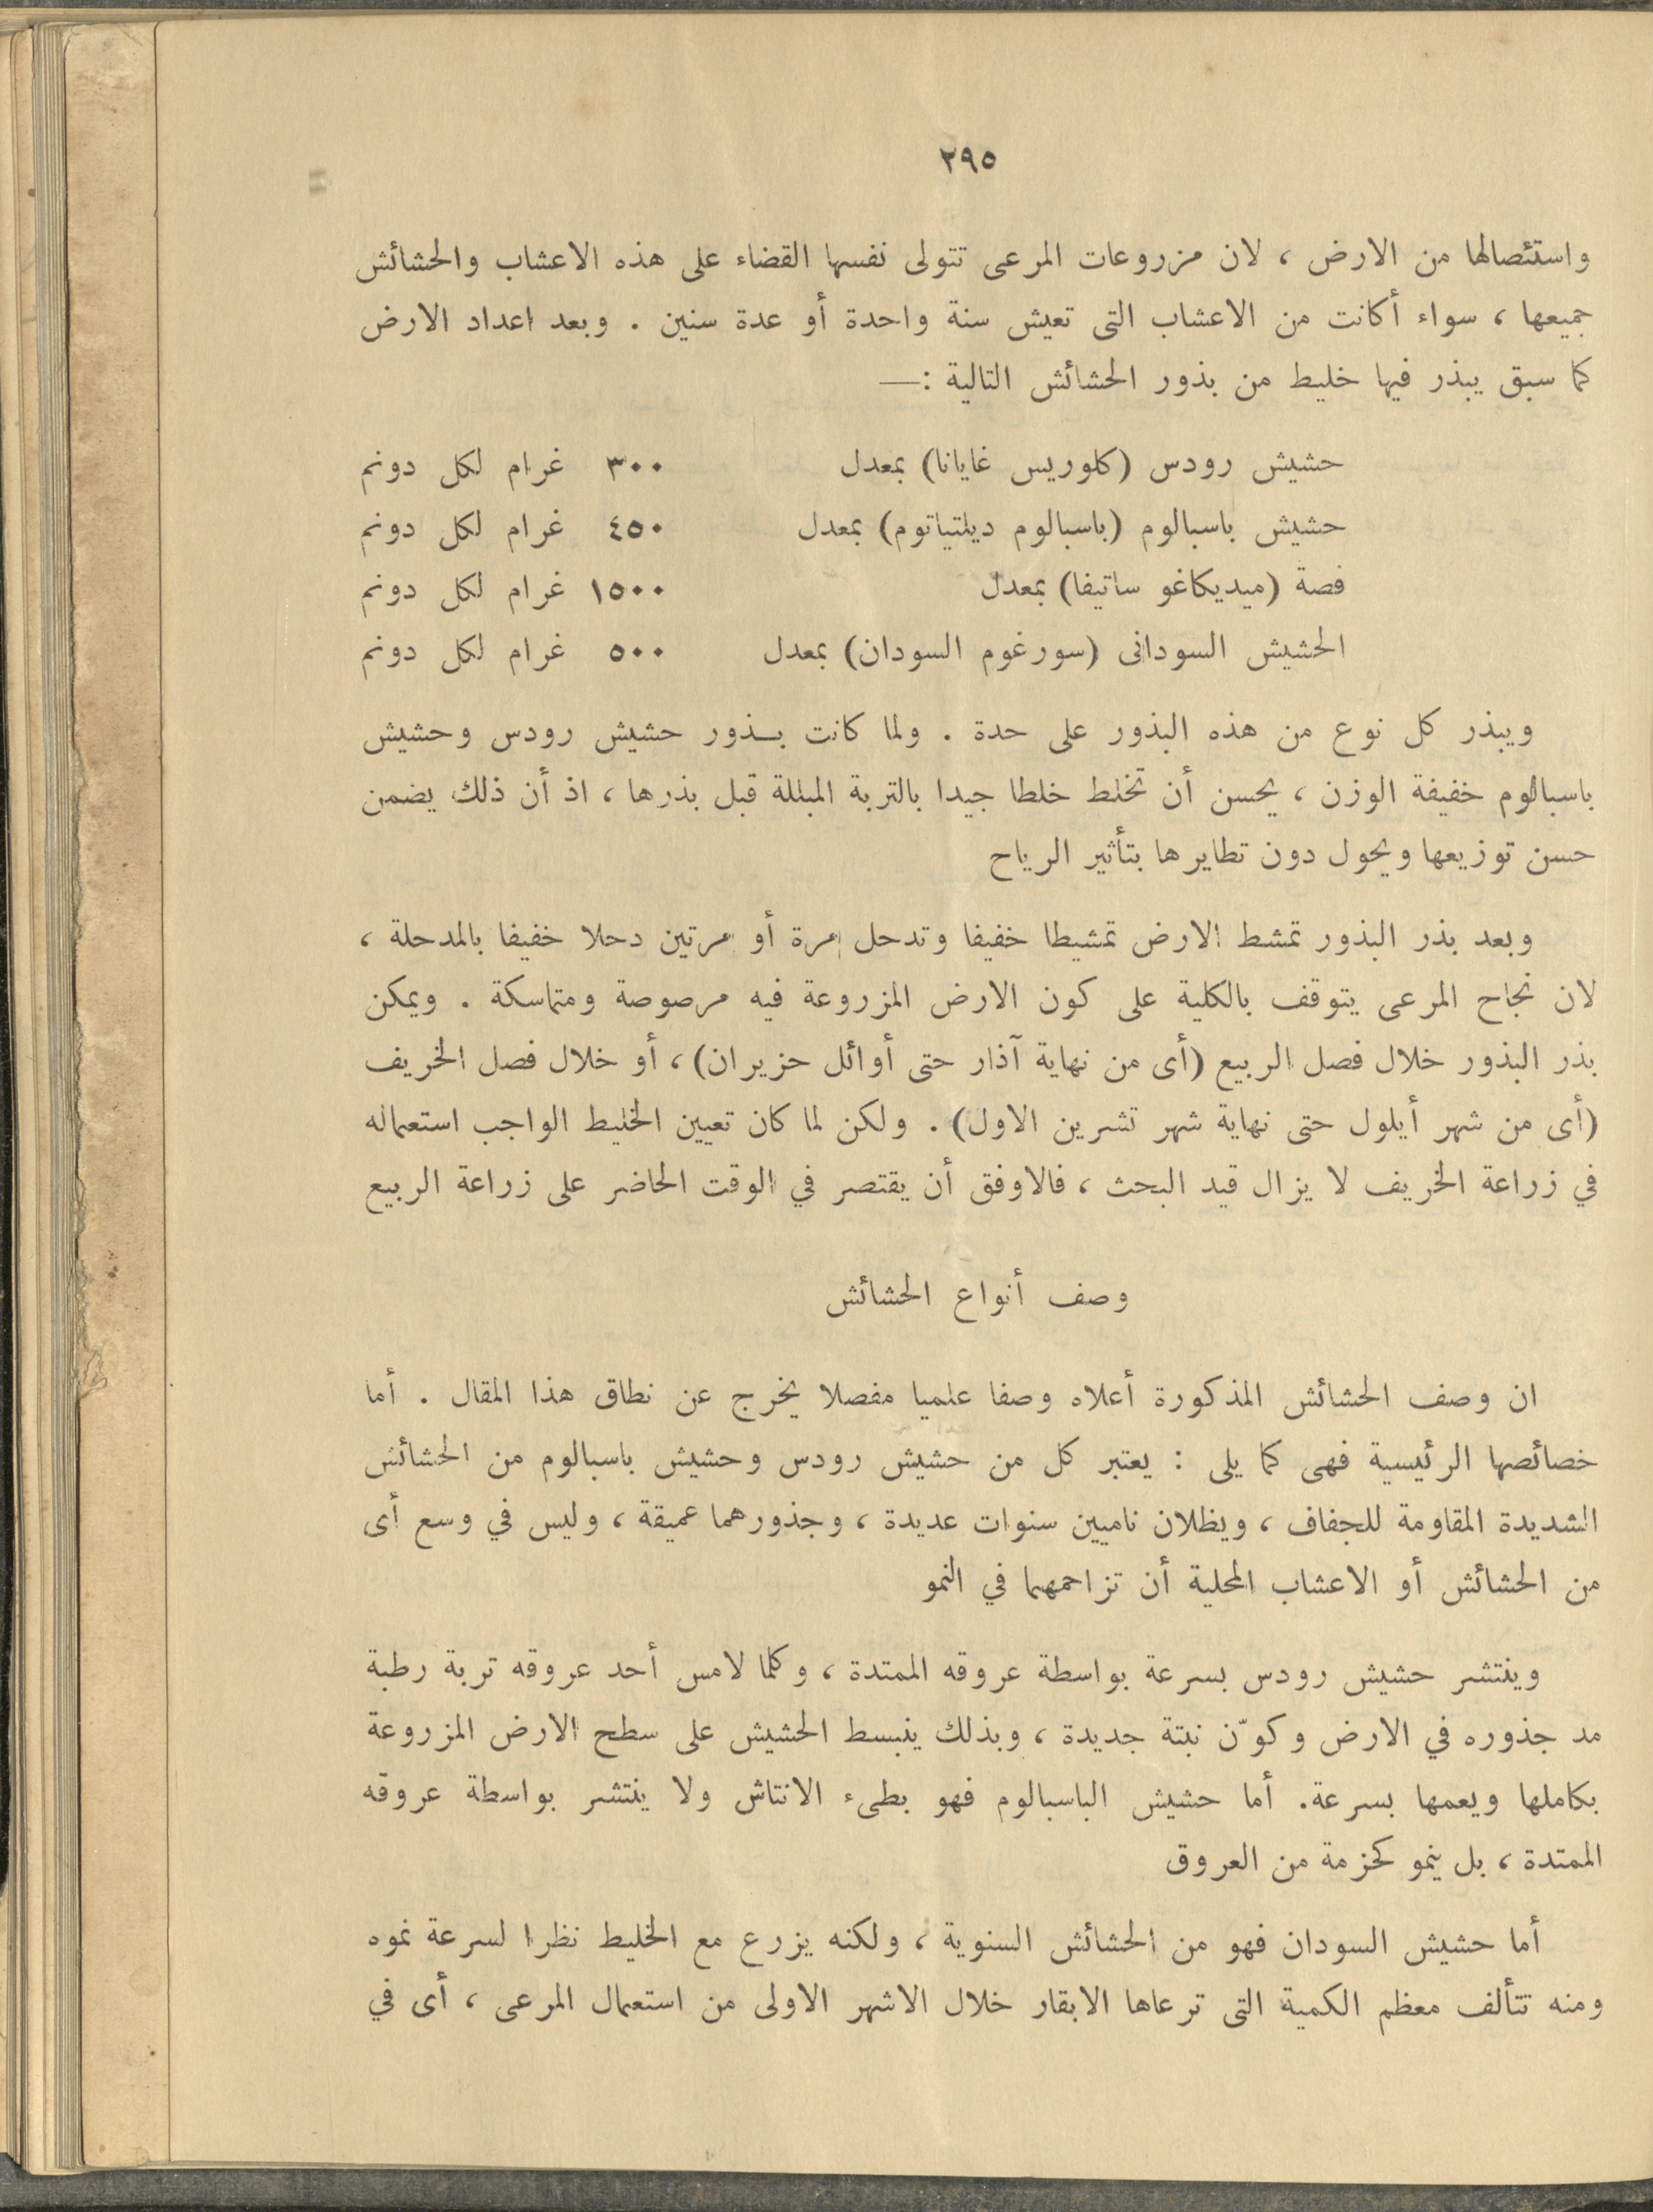 ٢٩٥
واستئصالها من الارض ، لان مزروعات المرعى تتولى نفسها القضاء على هذه الاعشاب والحشائش
جميعها ، سواء أكانت من الاعشاب التى تعيش سنة واحدة أو عدة سنين . وبعد اعداد الارض
كما سبق يبذر فيها خليط من بذور الحشائش التالية :—
حشيش رودس (كلوريس غايانا) بمعدل ٣٠٠ غرام لكل دونم
حشيش باسبالوم (باسبالوم ديلتياتوم) بمعدل ٤٥٠ غرام لكل دونم
فصة (ميديكاغو ساتيفا) بمعدل ١٥٠٠ غرام لكل دونم
الحشيش السودانى (سورغوم السودان) بمعدل ٥٠٠ غرام لكل دونم
ويبذر كل نوع من هذه البذور على حدة . ولما كانت بــذور حشيش رودس وحشيش
باسبالوم خفيفة الوزن ، يحسن أن تخلط خلطا جيدا بالتربة المبللة قبل بذرها ، اذ أن ذلك يضمن
حسن توزيعها ويحول دون تطايرها بتأثير الرياح
وبعد بذر البذور تمشط الارض تمشيطا خفيفا وتدحل مرة أو مرتين دحلا خفيفا بالمدحلة ،
لان نجاح المرعى يتوقف بالكلية على كون الارض المزروعة فيه مرصوصة ومتماسكة . ويمكن
بذر البذور خلال فصل الربيع (أى من نهاية آذار حتى أوائل حزيران) ، أو خلال فصل الخريف
(أى من شهر أيلول حتى نهاية شهر تشرين الاول) . ولكن لما كان تعيين الخليط الواجب استعماله
في زراعة الخريف لا يزال قيد البحث ، فالاوفق أن يقتصر في الوقت الحاضر على زراعة الربيع
وصف أنواع الحشائش
ان وصف الحشائش المذكورة أعلاه وصفا علميا مفصلا يخرج عن نطاق هذا المقال . أما
خصائصها الرئيسية فهى كما يلى : يعتبر كل من حشيش رودس وحشيش باسبالوم من الحشائش
الشديدة المقاومة للجفاف ، ويظلان ناميين سنوات عديدة ، وجذورهما عميقة ، وليس في وسع أى
من الحشائش أو الاعشاب المحلية أن تزاحمهما في النمو
وينتشر حشيش رودس بسرعة بواسطة عروقه الممتدة ، وكلما لامس أحد عروقه تربة رطبة
مد جذوره في الارض وكوّن نبتة جديدة ، وبذلك ينبسط الحشيش على سطح الارض المزروعة
بكاملها ويعمها بسرعة. أما حشيش الباسبالوم فهو بطىء الانتاش ولا ينتشر بواسطة عروقه
الممتدة ، بل ينمو كحزمة من العروق
أما حشيش السودان فهو من الحشائش السنوية ، ولكنه يزرع مع الخليط نظرا لسرعة نموه
ومنه تتألف معظم الكمية التى ترعاها الابقار خلال الاشهر الاولى من استعمال المرعى ، أى في